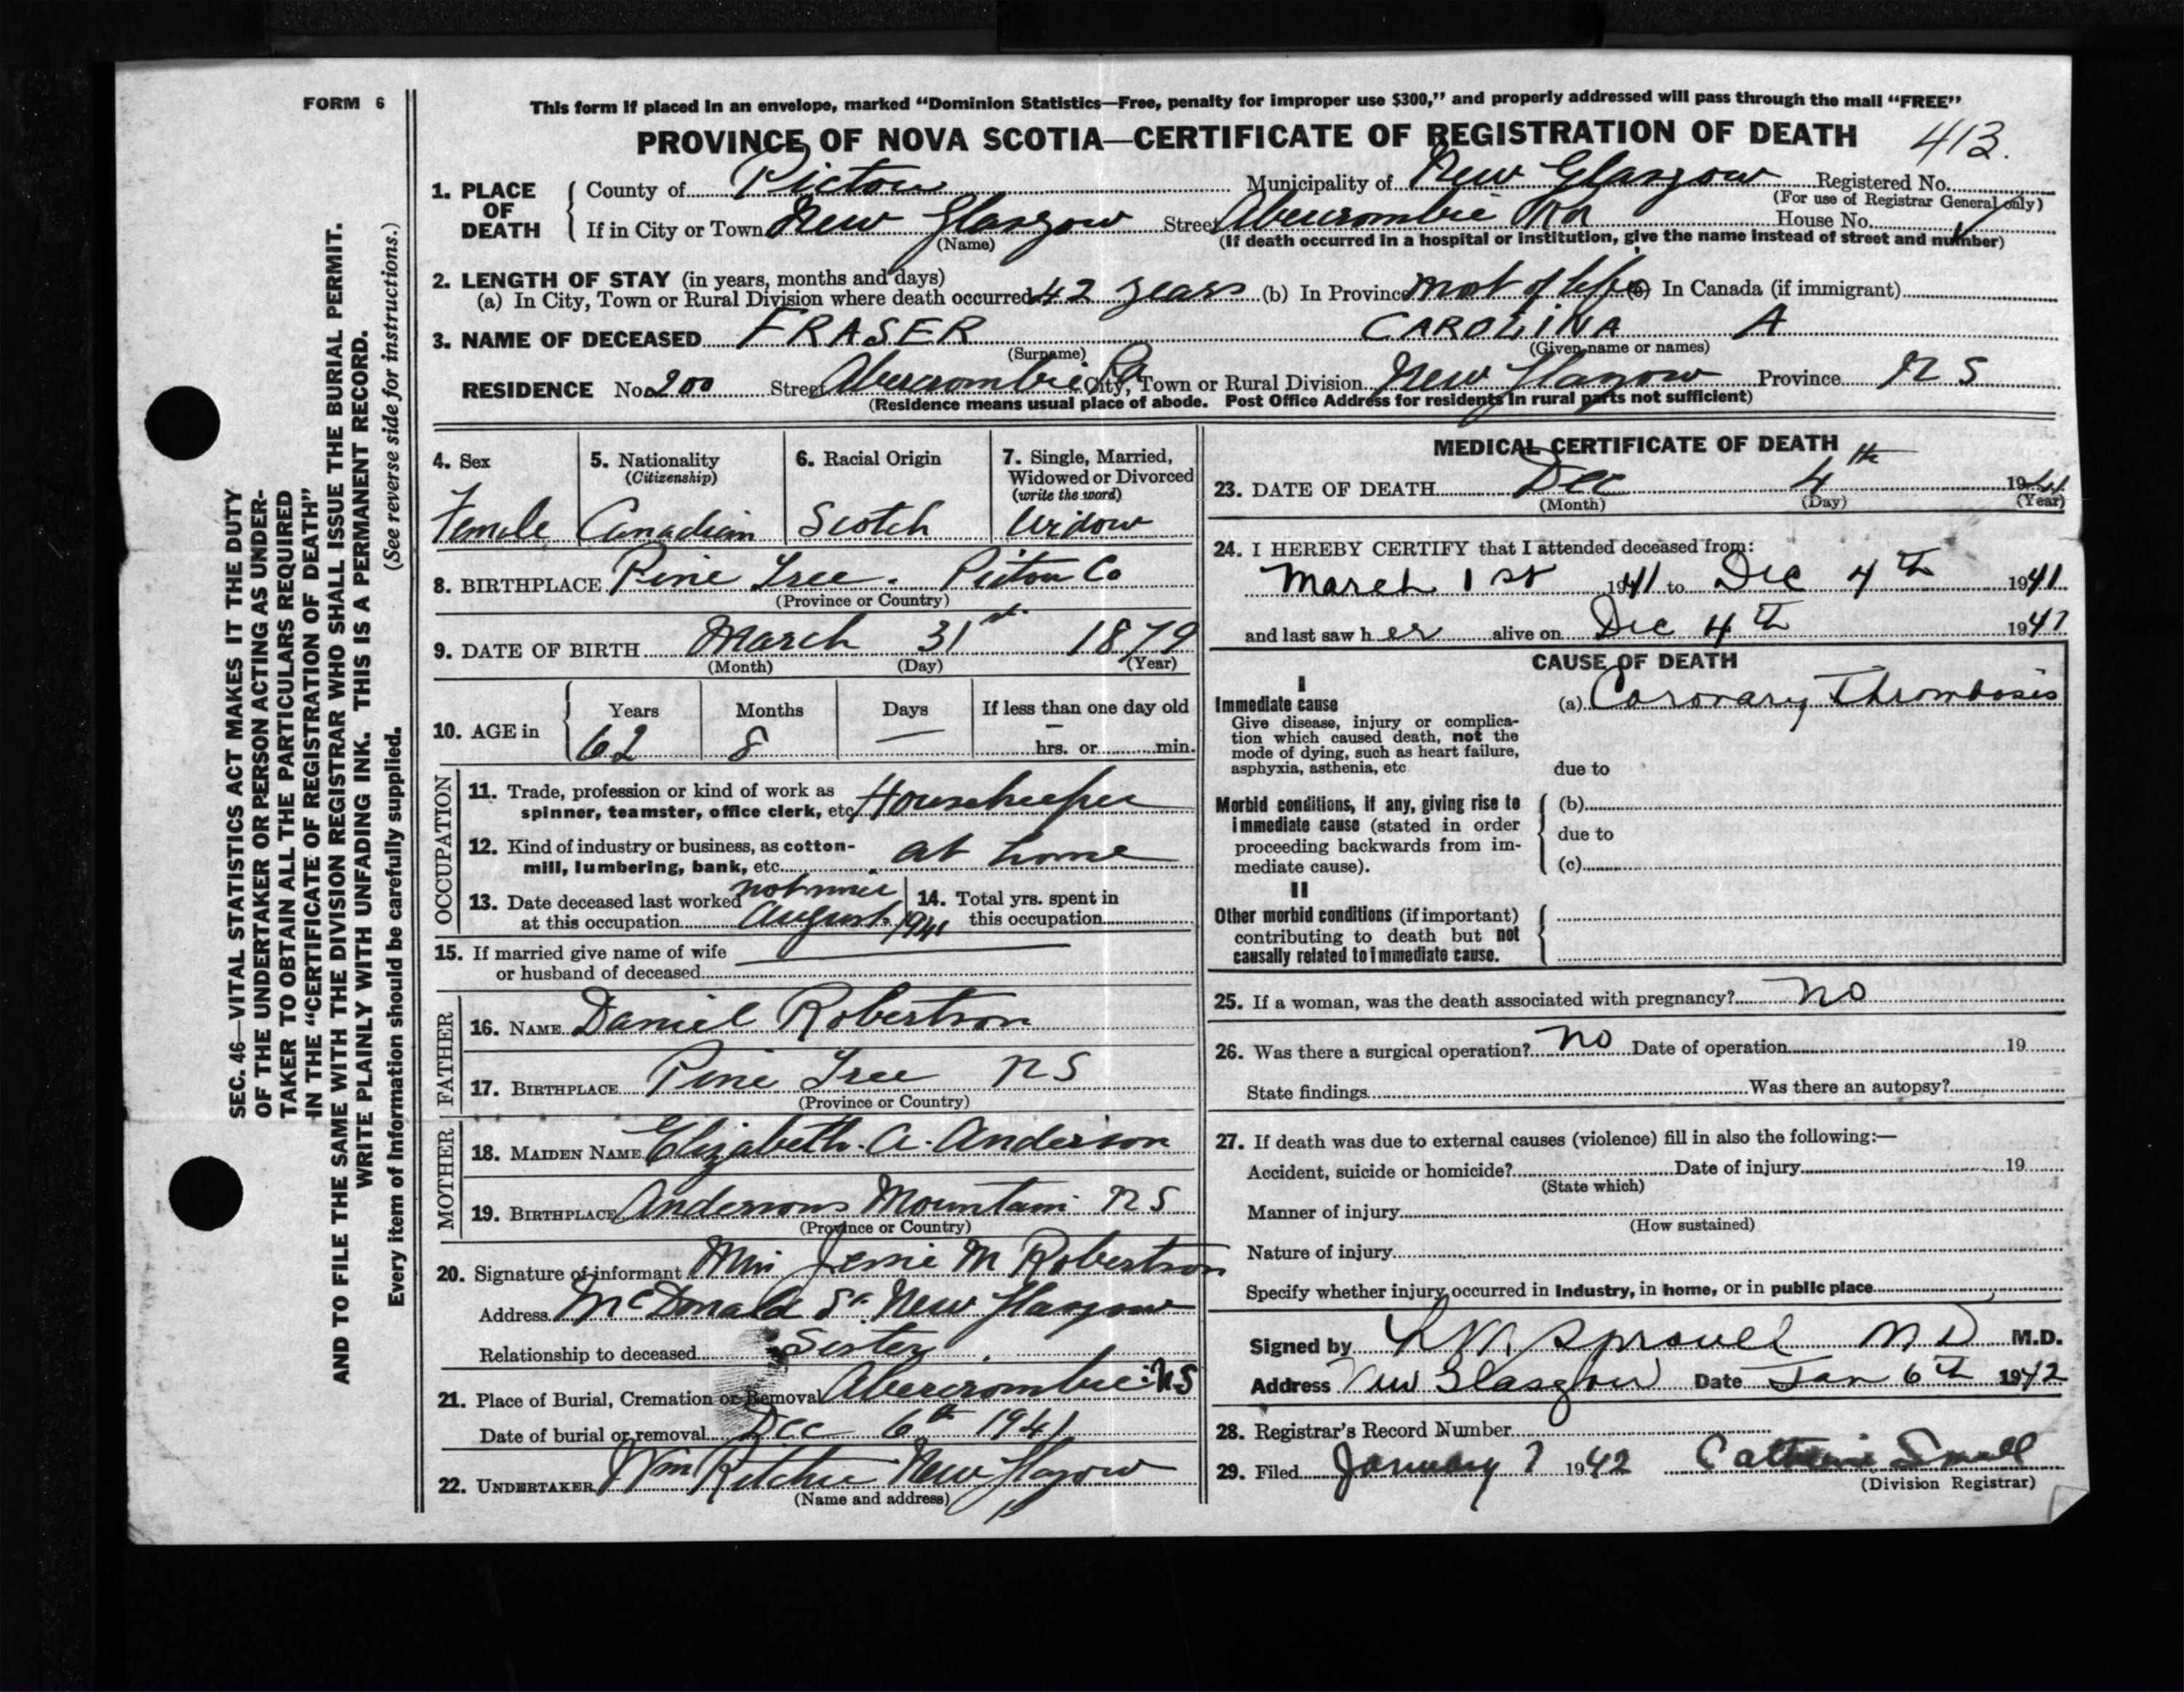 FORM 6
This form if placed in an envelope, marked “Dominion Statistics—Free, penalty for improper use $300,” and properly addressed will pass through the mail “FREE”
PROVINCE OF NOVA SCOTIA—CERTIFICATE OF REGISTRATION OF DEATH 413.
1. PLACE OF DEATH
County of Pictou Municipality of New Glasgow Registered No.
(For use of Registrar General only)
If in City or Town New Glasgow Street Abercrombie Rd House No.
(Name) (If death occurred in a hospital or institution, give the name instead of street and number)
2. LENGTH OF STAY (in years, months and days)
(a) In City, Town or Rural Division where death occurred 42 years (b) In Province most of life (c) In Canada (if immigrant)
3. NAME OF DECEASED FRASER CAROLINA A
(Surname) (Given name or names)
RESIDENCE No. 200 Street Abercrombie Rd City, Town or Rural Division New Glasgow Province N S
(Residence means usual place of abode. Post Office Address for residents in rural parts not sufficient)
4. Sex
Female
5. Nationality
(Citizenship)
Canadian
6. Racial Origin
Scotch
7. Single, Married,
Widowed or Divorced
(write the word)
Widow
8. BIRTHPLACE Pine Tree. Pictou Co
(Province or Country)
9. DATE OF BIRTH March 31st 1879
(Month) (Day) (Year)
10. AGE in
Years Months Days If less than one day old
62 8 — — hrs. or min.
OCCUPATION
11. Trade, profession or kind of work as
spinner, teamster, office clerk, etc. Housekeeper
12. Kind of industry or business, as cotton-
mill, lumbering, bank, etc. at home
13. Date deceased last worked not since
at this occupation August 1941
14. Total yrs. spent in
this occupation
15. If married give name of wife
or husband of deceased
FATHER
16. NAME Daniel Robertson
17. BIRTHPLACE Pine Tree N S
(Province or Country)
MOTHER
18. MAIDEN NAME Elizabeth. A. Anderson
19. BIRTHPLACE Andersons Mountain N S
(Province or Country)
20. Signature of informant Miss Jessie M Robertson
Address McDonald St New Glasgow
Relationship to deceased Sister
21. Place of Burial, Cremation or Removal Abercrombie N S
Date of burial or removal Dec 6th 1941
22. UNDERTAKER Wm Ritchie New Glasgow
(Name and address)
MEDICAL CERTIFICATE OF DEATH
23. DATE OF DEATH Dec 4th 1941
(Month) (Day) (Year)
24. I HEREBY CERTIFY that I attended deceased from:
March 1st 1941 to Dec 4th 1941
and last saw her alive on Dec 4th 1941
CAUSE OF DEATH
I
Immediate cause
Give disease, injury or complica-
tion which caused death, not the
mode of dying, such as heart failure,
asphyxia, asthenia, etc
(a) Coronary Thrombosis
due to
Morbid conditions, if any, giving rise to
immediate cause (stated in order
proceeding backwards from im-
mediate cause).
(b)
due to
(c)
II
Other morbid conditions (if important)
contributing to death but not
causally related to immediate cause.
25. If a woman, was the death associated with pregnancy? No
26. Was there a surgical operation? No Date of operation 19
State findings Was there an autopsy?
27. If death was due to external causes (violence) fill in also the following:—
Accident, suicide or homicide? Date of injury 19
(State which)
Manner of injury
(How sustained)
Nature of injury
Specify whether injury occurred in industry, in home, or in public place
Signed by Sproull M D M.D.
Address New Glasgow Date Jan 6th 1942
28. Registrar's Record Number
29. Filed January 7 1942 Catherine Small
(Division Registrar)
SEC. 46—VITAL STATISTICS ACT MAKES IT THE DUTY
OF THE UNDERTAKER OR PERSON ACTING AS UNDER-
TAKER TO OBTAIN ALL THE PARTICULARS REQUIRED
IN THE “CERTIFICATE OF REGISTRATION OF DEATH”
AND TO FILE THE SAME WITH THE DIVISION REGISTRAR WHO SHALL ISSUE THE BURIAL PERMIT.
WRITE PLAINLY WITH UNFADING INK. THIS IS A PERMANENT RECORD.
Every item of information should be carefully supplied. (See reverse side for instructions.)